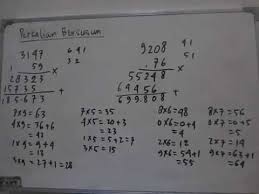 Perkalian Bersusun
3147
59 x
28323
15735 +
185.673
9208
76 x
55248
64456 +
699.808
41
51
7x9=63
4x9=36+6
1x9=9+4
=13
3x9=27+1=28
7x5=35
4x5=20+3
=23
1x5=5+2=7
3x5=15
8x6=48
0x6=0+4
=4
2x6=12
9x6=54+1
=55
8x7=56
0x7=0+5
=5
2x7=14
9x7=63+1
=64